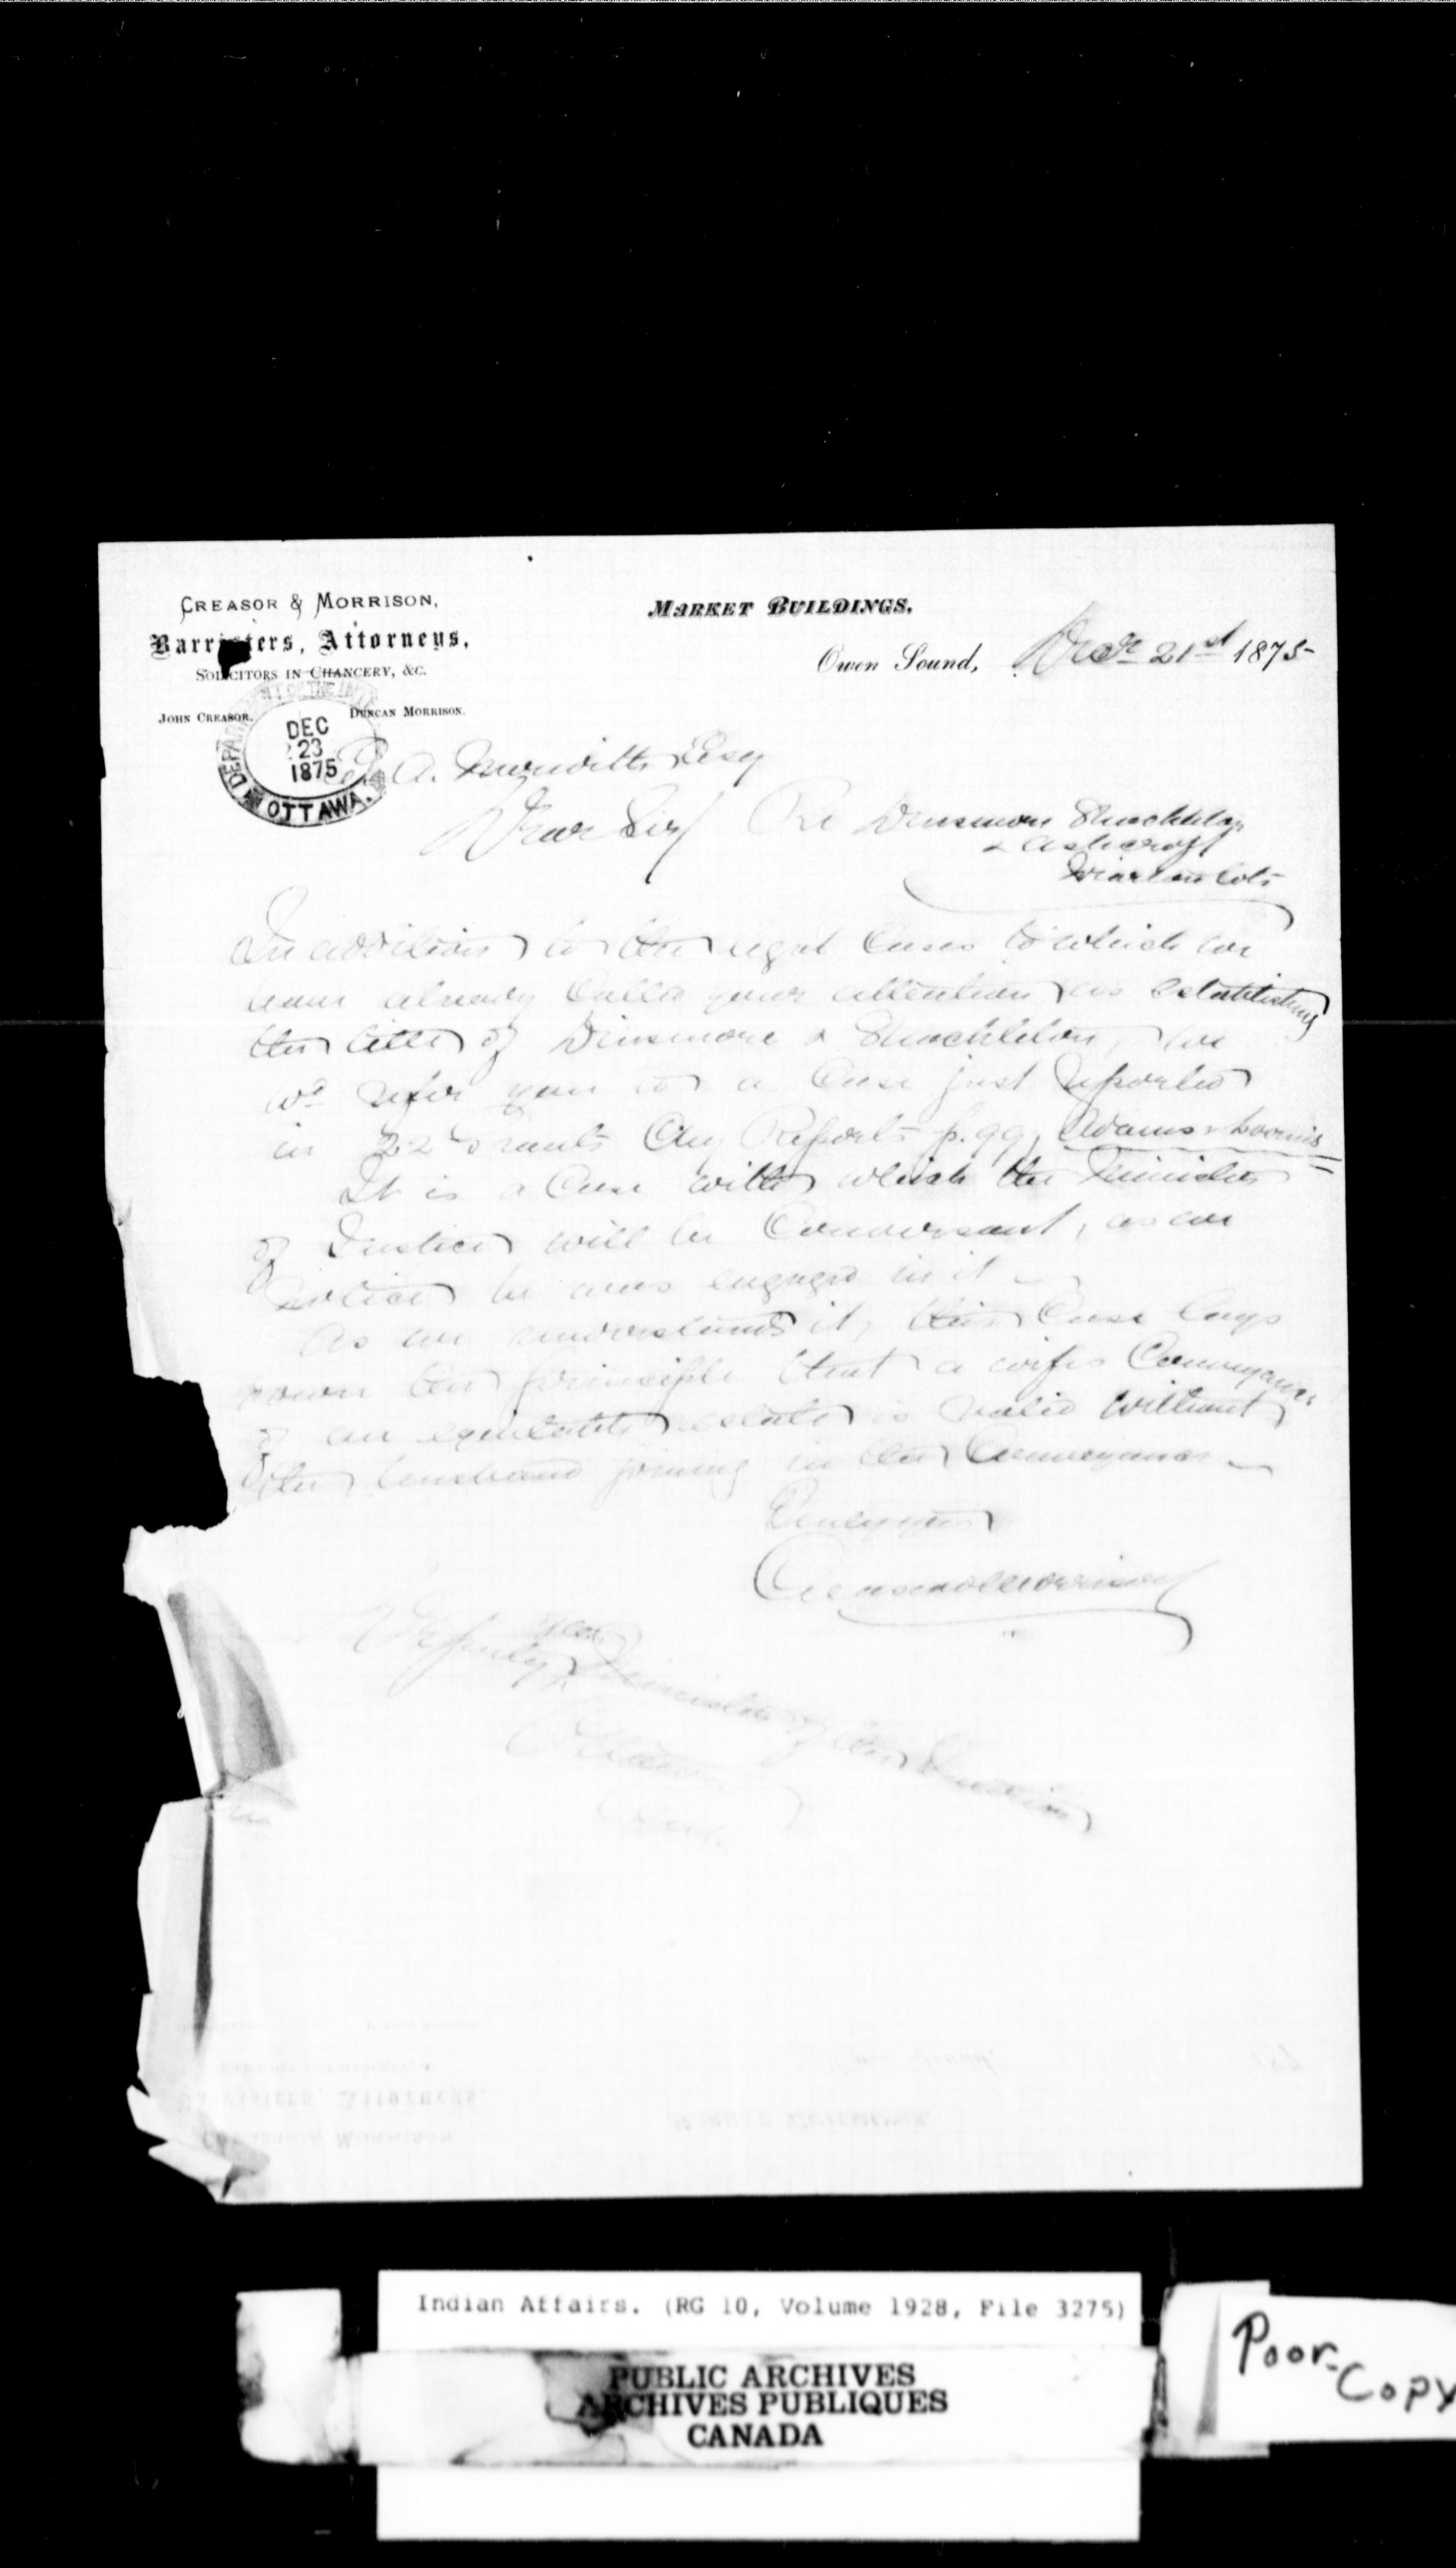 CREASOR & MORRISON,
Barristers, Attorneys,
SOLICITORS IN CHANCERY, &C.
JOHN CREASOR. DUNCAN MORRISON.
MARKET BUILDINGS,
Owen Sound, Decr 21st 1875
DEC
23
1875
OTTAWA.
A. Esq
Dear Sir Re Dinsmore Shackleton
& Ashcroft
Wiarton Lots
In addition to the legal Cases to which we
have already Called your attention as establishing
the title of Dinsmore & Shackleton, we
wd refer you to a Case just reported
in 22 Grants Chy Reports p. 99, Adams v Loomis
It is a Case with which the Minister
of Justice will be Conversant, as we
notice he was engaged in it –
As we understand it, this Case lays
down the principle that a wifes Conveyance
of an equitable estate is valid without
the husband joining in the Conveyance –
Yours
Creasor & Morrison
Deputy Minister of the Interior
Ottawa
Indian Affairs. (RG 10, Volume 1928, File 3275)
PUBLIC ARCHIVES
ARCHIVES PUBLIQUES
CANADA
Poor
Copy